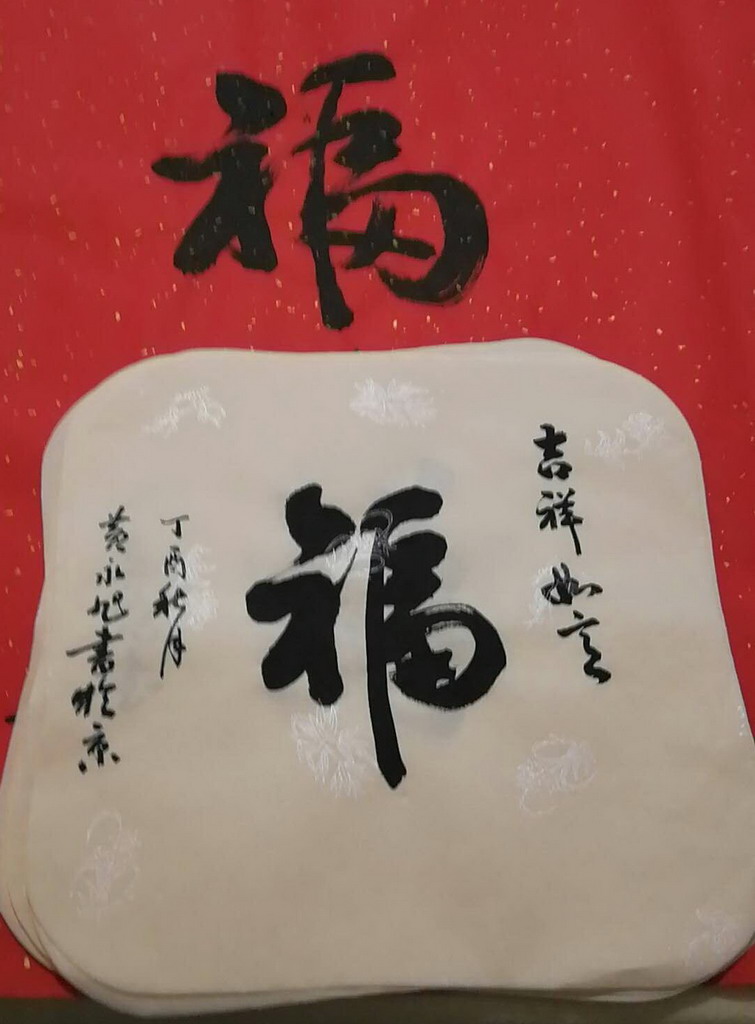 福
吉祥如意
福
丁酉秋月
黄永旭书於京